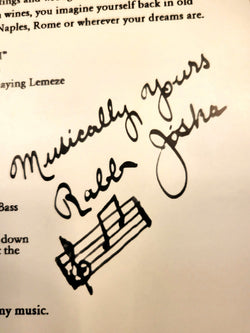 wines, you imagine yourself back in old
Naples, Rome or wherever your dreams are.
aying Lemeze
Musically Yours
Rabb Josha
Bass
down
the
ny music.